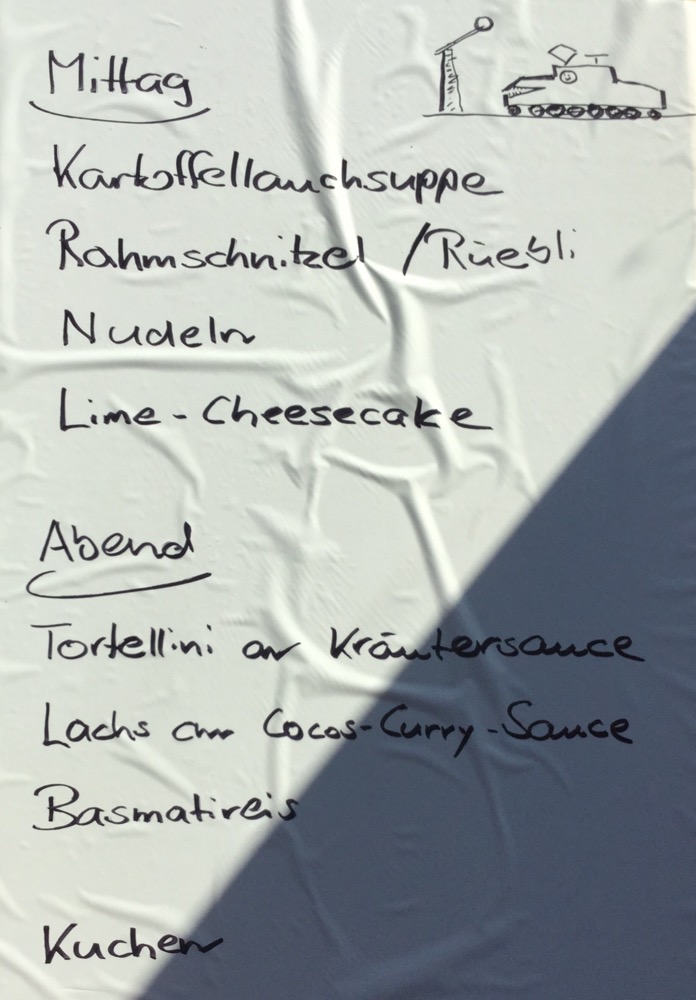 Mittag
Kartoffellauchsuppe
Rahmschnitzel / Rüebli
Nudeln
Lime-Cheesecake
Abend
Tortellini an Kräutersauce
Lachs an Cocos-Curry-Sauce
Basmatireis
Kuchen